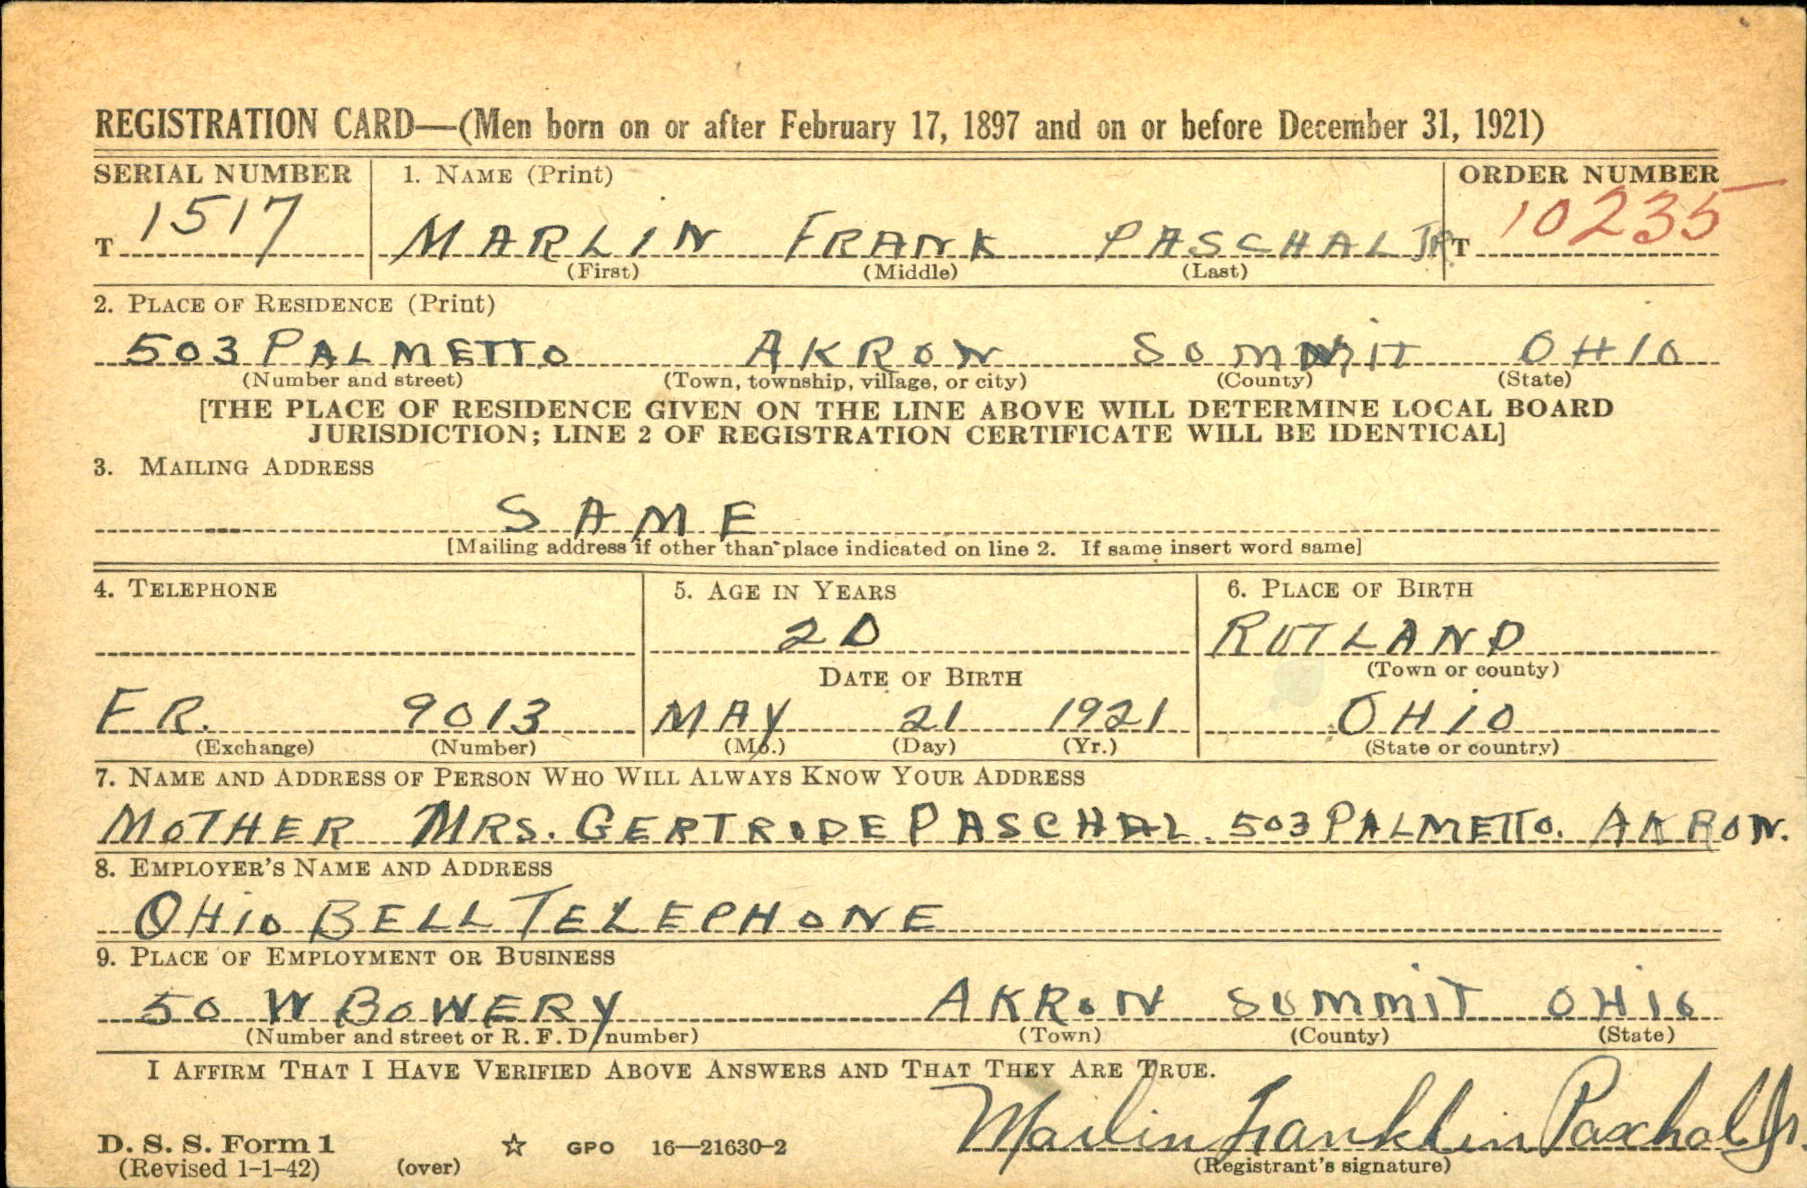 REGISTRATION CARD—(Men born on or after February 17, 1897 and on or before December 31, 1921)
SERIAL NUMBER 1. NAME (Print) ORDER NUMBER
T 1517 MARLIN FRANK PASCHAL JR. T 10235
(First) (Middle) (Last)
2. PLACE OF RESIDENCE (Print)
503 PALMETTO AKRON SUMMIT OHIO
(Number and street) (Town, township, village, or city) (County) (State)
[THE PLACE OF RESIDENCE GIVEN ON THE LINE ABOVE WILL DETERMINE LOCAL BOARD
JURISDICTION; LINE 2 OF REGISTRATION CERTIFICATE WILL BE IDENTICAL]
3. MAILING ADDRESS
SAME
[Mailing address if other than place indicated on line 2. If same insert word same]
4. TELEPHONE 5. AGE IN YEARS 6. PLACE OF BIRTH
20 RUTLAND
DATE OF BIRTH (Town or county)
FR. 9013 MAY 21 1921 OHIO
(Exchange) (Number) (Mo.) (Day) (Yr.) (State or country)
7. NAME AND ADDRESS OF PERSON WHO WILL ALWAYS KNOW YOUR ADDRESS
MOTHER MRS. GERTRUDE PASCHAL. 503 PALMETTO. AKRON.
8. EMPLOYER'S NAME AND ADDRESS
OHIO BELL TELEPHONE
9. PLACE OF EMPLOYMENT OR BUSINESS
50 W BOWERY AKRON SUMMIT OHIO
(Number and street or R. F. D. number) (Town) (County) (State)
I AFFIRM THAT I HAVE VERIFIED ABOVE ANSWERS AND THAT THEY ARE TRUE.
Marlin Franklin Paschal Jr.
D. S. S. Form 1 ☆ GPO 16—21630-2
(Revised 1-1-42) (over) (Registrant's signature)